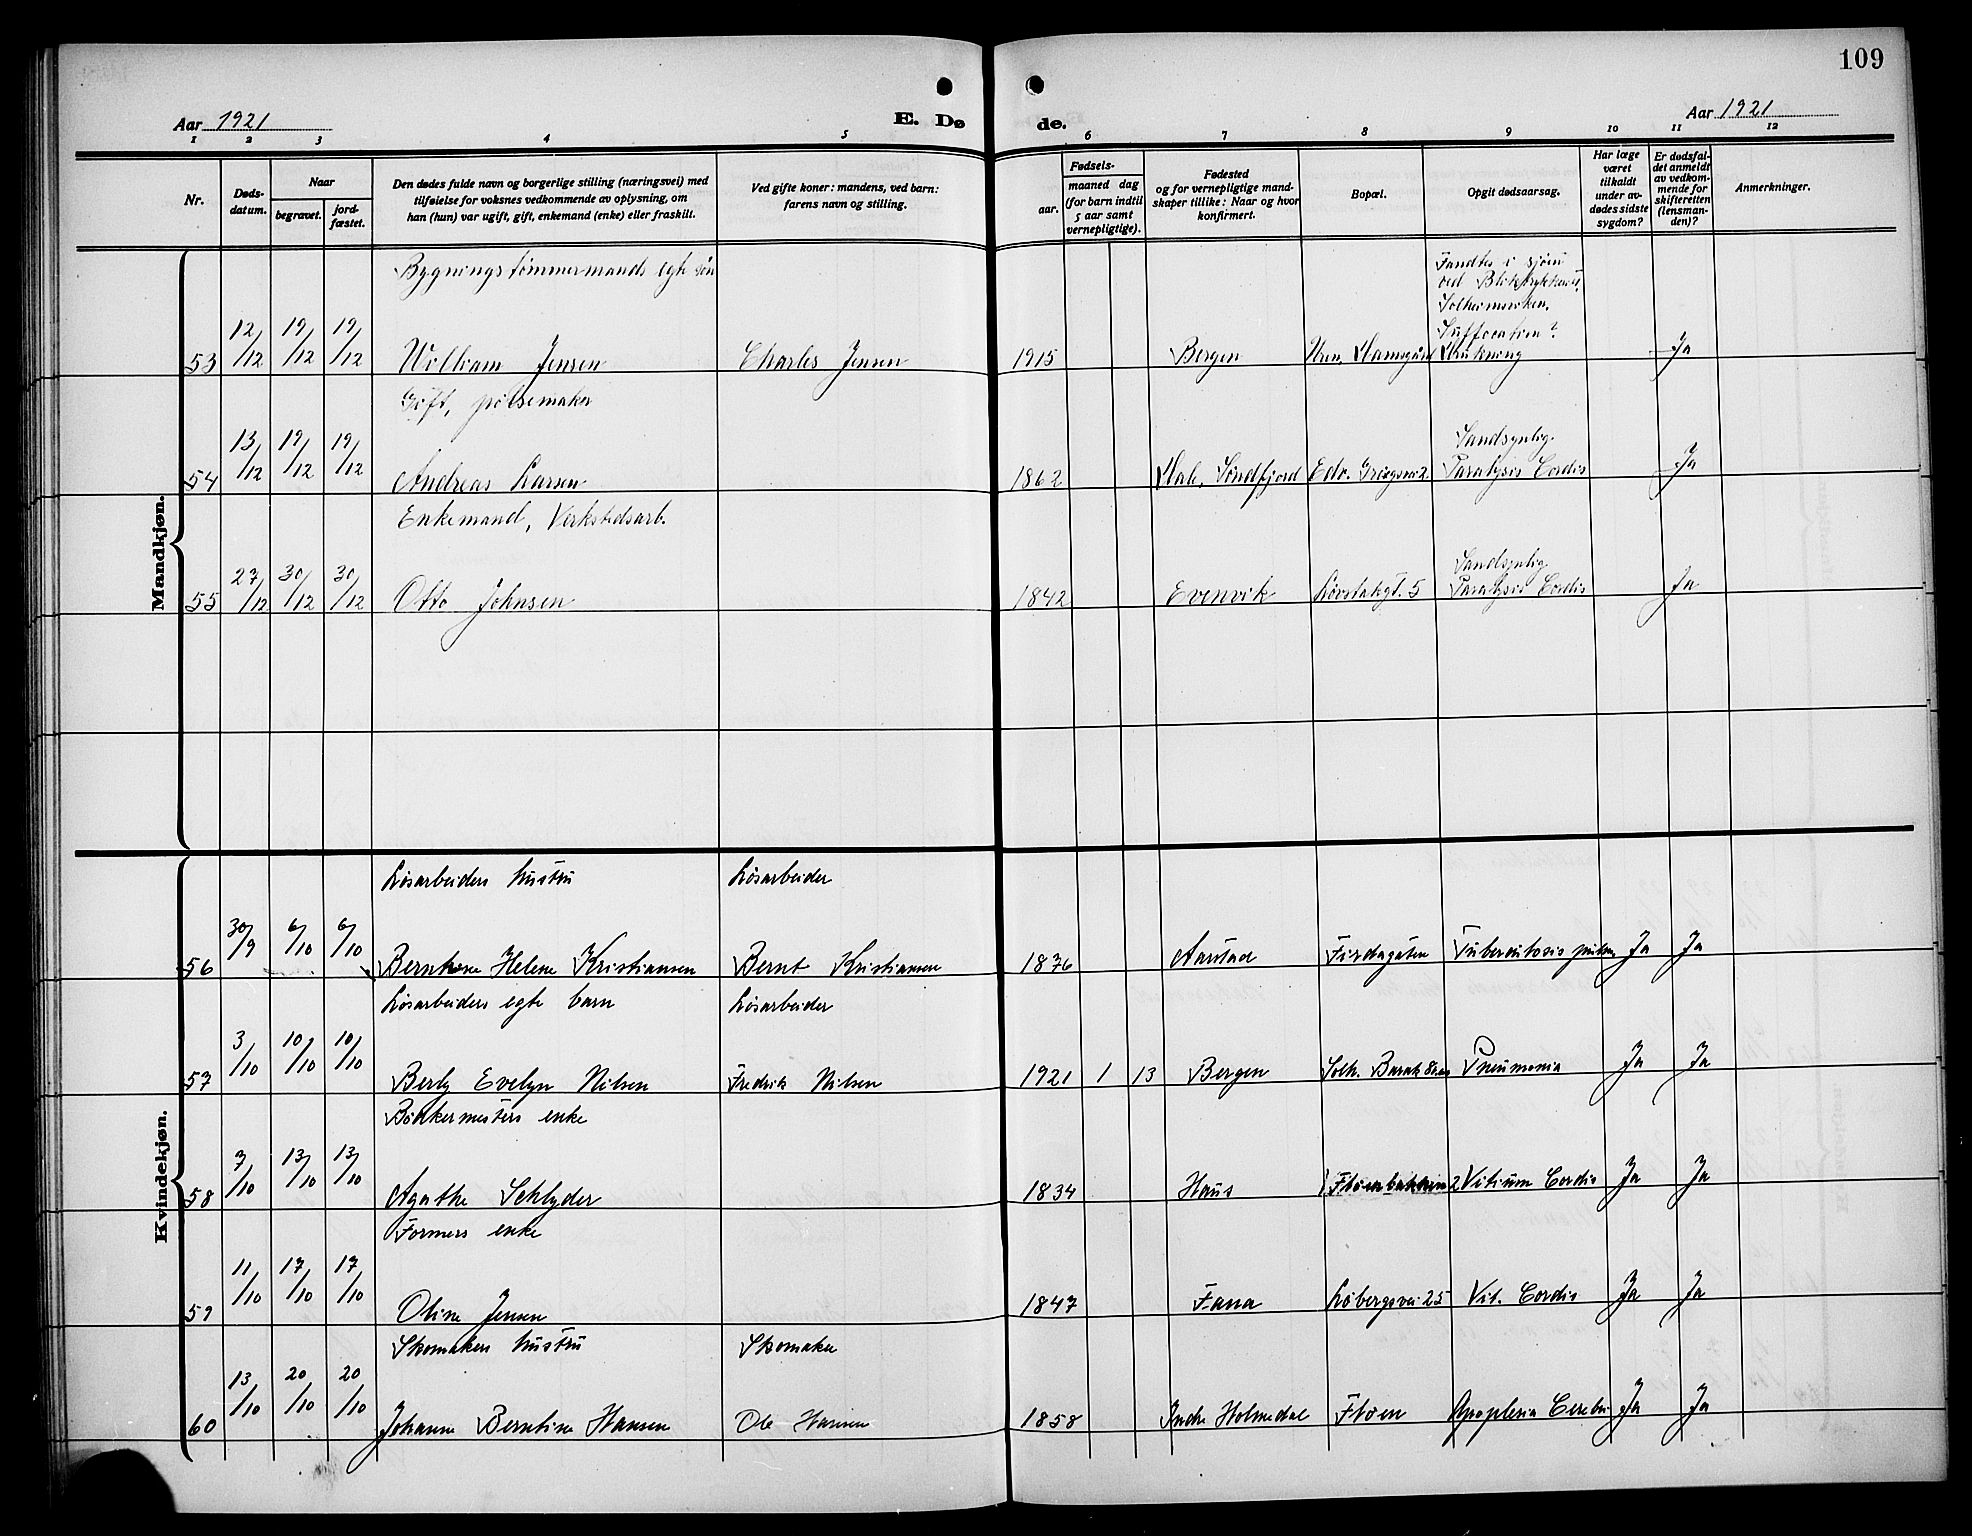 109
Aar 1921 E. Dø de. Aar 1921
1 2 3 4 5 6 7 8 9 10 11 12
Nr.
Døds-
datum.
Naar
begravet.
jord-
fæstet.
Den dødes fulde navn og borgerlige stilling (næringsvei) med
tilføielse for voksnes vedkommende av oplysning, om
han (hun) var ugift, gift, enkemand (enke) eller fraskilt.
Ved gifte koner: mandens, ved barn:
farens navn og stilling.
Fødsels-
aar.
maaned dag
(for barn indtil
5 aar samt
vernepligtige).
Fødested
og for vernepligtige mand-
skaper tillike: Naar og hvor
konfirmert.
Bopæl.
Opgit dødsaarsag.
Har læge
været
tilkaldt
under av-
dødes sidste
sygdom?
Er dødsfal-
det anmeldt
av vedkom-
mende for
skifteretten
(lensman-
den)?
Anmerkninger.
Mandkjøn.
Bygningstømmermands egte søn
Fandtes i sjøen
ved
Solheimsviken.
Suffocation?
53 12/12 19/12 19/12 William Jensen Charles Jensen 1915 Bergen Drukning Ja
Gift, pølsemaker
Sandsynlig.
54 13/12 19/12 19/12 Andreas Larsen 1862 Søndfjord Edv. Griegsvei 2 Paralysis Cordis Ja
Enkemand, Verkstedsarb.
Sandsynlig
55 27/12 30/12 30/12 Otto Johnsen 1842 Evenvik Løvstakgt. 5 Paralysis Cordis Ja
Kvindekjøn.
Løsarbeiders hustru Løsarbeider
56 30/9 6/10 6/10 Berntine Helene Kristiansen Bernt Kristiansen 1876 Aarstad Firdagaten Tuberculosis pulm. Ja Ja
Løsarbeiders egte barn Løsarbeider
57 3/10 10/10 10/10 Berly Evelyn Nilsen Fredrik Nilsen 1921 1 13 Bergen Solh. Barak Pneumonia Ja Ja
Bødkermesters enke
58 7/10 13/10 13/10 Agathe Schlyder 1834 Haus Fløenbakken 2 Vitium Cordis Ja Ja
Formers enke
59 11/10 17/10 17/10 Oline Jensen 1847 Fana Løbergsvei 25 Vit. Cordis Ja Ja
Skomakers hustru Skomaker
60 13/10 20/10 20/10 Johanne Berntine Hansen Ole Hansen 1858 Indre Holmedal Fløen Apoplexia Cerebri Ja Ja